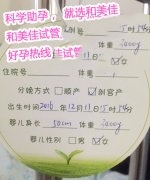 科学助孕，就选和美佳
和美佳试管
好孕热线 试管
体重 3000g
11日
住院号
体重
分娩方式 □顺产 ☑剖宫产
出生时间 2016年12月11日 5时54分
婴儿身长 50cm 体重 3000g
婴儿性别 □男 ☑女